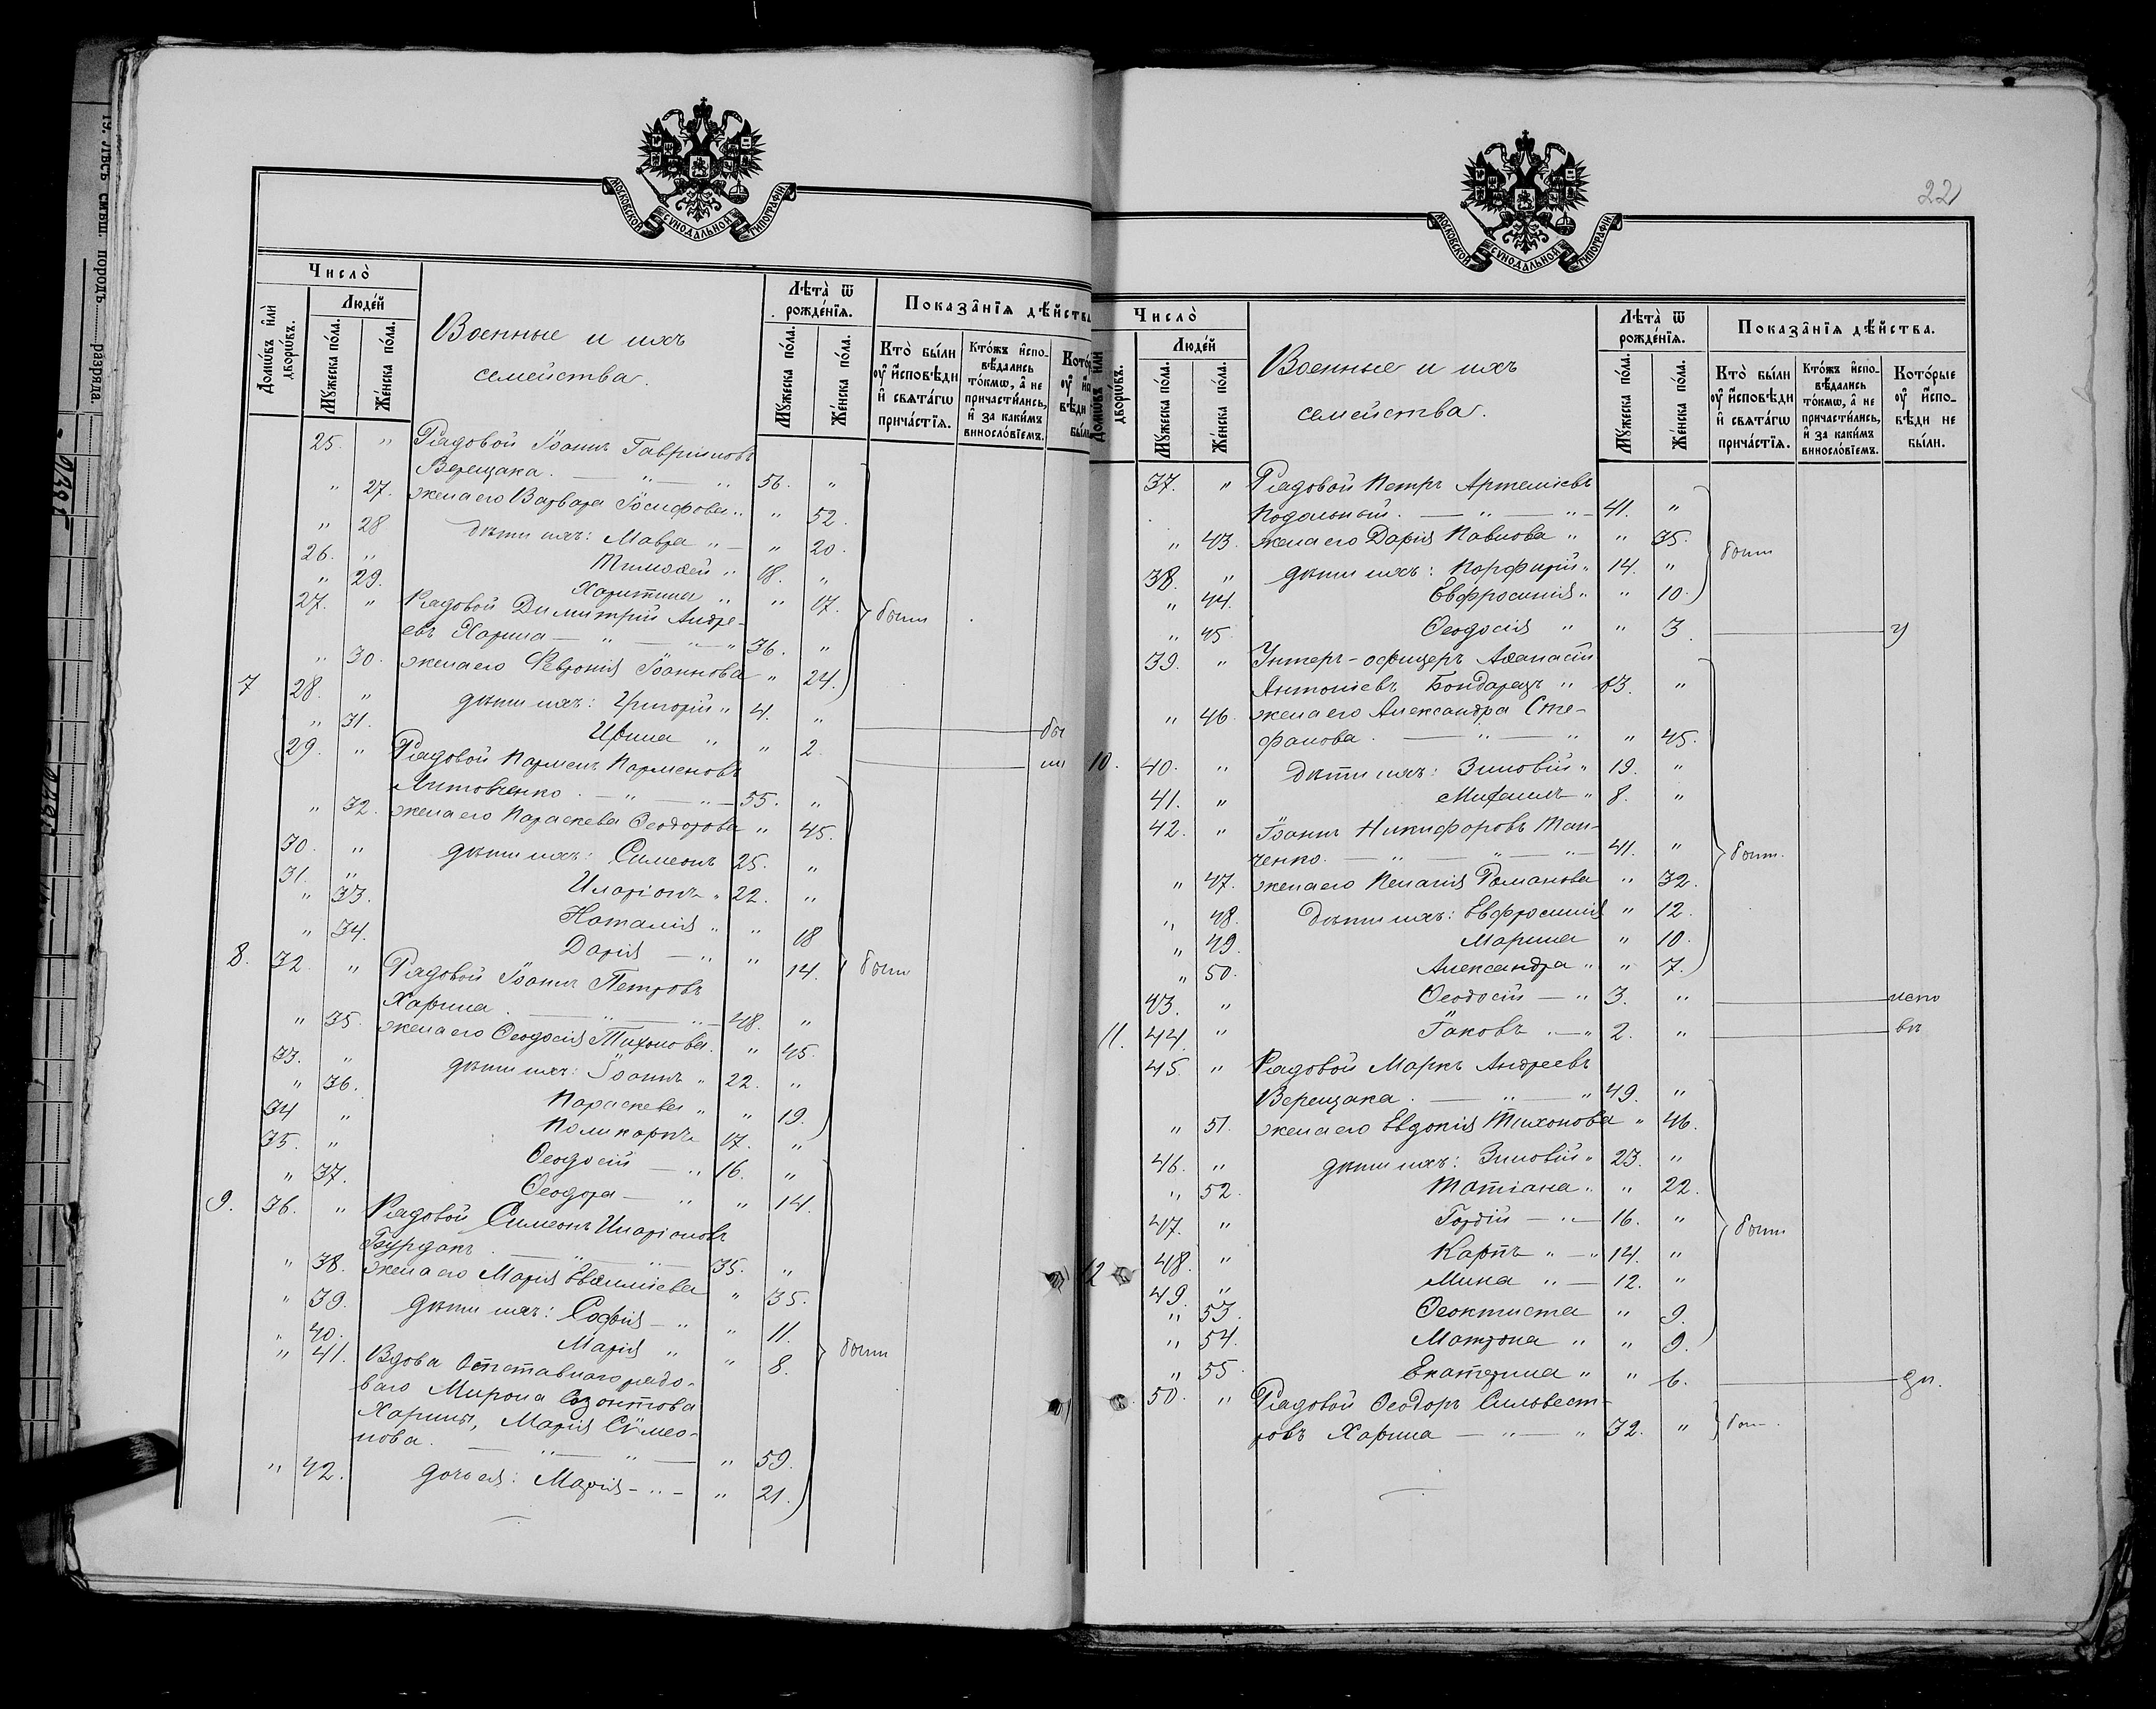 19. Лѣсъ смѣш. породъ разряда.
МОСКОВСКОЙ СѴНОДАЛЬНОЙ ТИПОГРАФІИ
Число̀
Домѡ́въ и҆лѝ дворѡ́въ.
Люде́й
Мꙋ́жеска по́ла.
Же́нска по́ла.
Военные и ихъ
семейства.
Лѣта̀ ѿ рожде́нїѧ.
Мꙋ́жеска по́ла.
Же́нска по́ла.
Показа̑нїѧ дѣ́йства
Кто̀ бы́ли оу҆ и҆сповѣ́ди и҆ свѧта́гѡ прича́стїѧ.
Кто́жъ и҆спо-
вѣ́дались
то́кмѡ, а҆ не
причасти́лись,
и҆ за каки́мъ
винослѡ́вїемъ.
25. „ Рядовой Іоаннъ Гавриловъ
Верещака. — „ — „ 56. „
„ 27. жена его Варвара Іосифова „ „ 52.
„ 28 дѣти ихъ: Мавра „ — „ 20.
26. „ Тимоѳей „ 18. „
„ 29. Харитина „ „ 17.
27. „ Рядовой Димитрій Андре-
евъ Харина — „ — „ 36. „ были
„ 30. жена его Февронія Іоаннова „ 24.
7 28. „ дѣти ихъ: Григорій „ 4. „
„ 31. Ирина „ „ 2.
29. „ Рядовой Парменъ Парменовъ
Литовченко. — „ — „ — 55. „
„ 32. жена его Параскева Ѳеодорова „ 45.
30. „ дѣти ихъ: Симеонъ 25. „
31. „ Иларіонъ „ 22. „
„ 33. Наталія „ „ 18
„ 34. Дарія — „ „ 14.
8. 32. „ Рядовой Іоаннъ Петровъ были
Харина. — „ — „ — 48. „
„ 35. жена его Ѳеодосія Тихонова. „ 45.
33. „ дѣти ихъ: Іоаннъ „ 22. „
„ 36. Параскева „ „ 19.
34 „ Поликарпъ 17. „
35. „ Ѳеодосій — „ 16. „
„ 37. Ѳеодора — „ „ 14.
9. 36. „ Рядовой Симеонъ Иларіоновъ
Бурдакъ. — „ — „ — 35. „
„ 38. жена его Марія Евѳиміева „ 35.
„ 39. дѣти ихъ: Софія — „ „ 11.
„ 40. Марія „ „ 8. были
„ 41. Вдова Отставного рядо-
ваго Мирона Созонтова
Харины, Марія Сѵмео-
нова. — „ — „ — „ 59.
„ 42. дочь ея: Марія — „ — „ 21.
22
МОСКОВСКОЙ СѴНОДАЛЬНОЙ ТИПОГРАФІИ
Число̀
Домѡ́въ и҆лѝ дворѡ́въ.
Люде́й
Мꙋ́жеска по́ла.
Же́нска по́ла.
Военные и ихъ
семейства.
Лѣта̀ ѿ рожде́нїѧ.
Мꙋ́жеска по́ла.
Же́нска по́ла.
Показа̑нїѧ дѣ́йства.
Кто̀ бы́ли оу҆ и҆сповѣ́ди и҆ свѧта́гѡ прича́стїѧ.
Кто́жъ и҆спо-
вѣ́дались
то́кмѡ, а҆ не
причасти́лись,
и҆ за каки́мъ
винослѡ́вїемъ.
Кото́рые оу҆ и҆спо-
вѣ́ди не
бы́ли.
37. „ Рядовой Петръ Артеміевъ
Подольный. — „ — „ — 41. „
„ 43. жена его Дарія Павлова „ „ 35. были
38. „ дѣти ихъ: Порфирій „ 14. „
„ 44. Евфросинія „ „ 10.
„ 45. Ѳеодосія „ „ 3.
39. „ Унтеръ-офицеръ Аѳанасій
Антоніевъ Бондарецъ „ 63. „
„ 46. жена его Александра Сте-
фанова. — „ — „ „ 45.
10. 40. „ дѣти ихъ: Зиновій „ 19. „
41. „ Михаилъ „ 8. „
42. „ Іоаннъ Никифоровъ Ман-
ченко. — „ — „ — „ — 41. „ были.
„ 47. жена его Пелагія Романова „ 32.
„ 48. дѣти ихъ: Евфросинія „ 12.
„ 49. Марина „ 10.
„ 50. Александра „ „ 7.
43. „ Ѳеодосій — „ 3. „ испо
11. 44. „ Іаковъ „ — „ 2. „ вѣ
45. „ Рядовой Маркъ Андреевъ
Верещака. — „ — „ 49. „
„ 51. жена его Евдокія Тихонова „ 46.
46. „ дѣти ихъ: Зиновій „ 23. „
„ 52. Татіана „ „ 22.
47. „ Гордій — „ — 16. „ были
12 48. „ Карпъ „ — „ 14. „
49. „ Мина „ — 12. „
„ 53. Ѳеоктиста „ 9.
„ 54. Матрона „ „ 9.
„ 55. Екатерина „ „ 6. ди.
50. „ Рядовой Ѳеодоръ Сильвест-
ровъ Харина — „ — „ 32. „